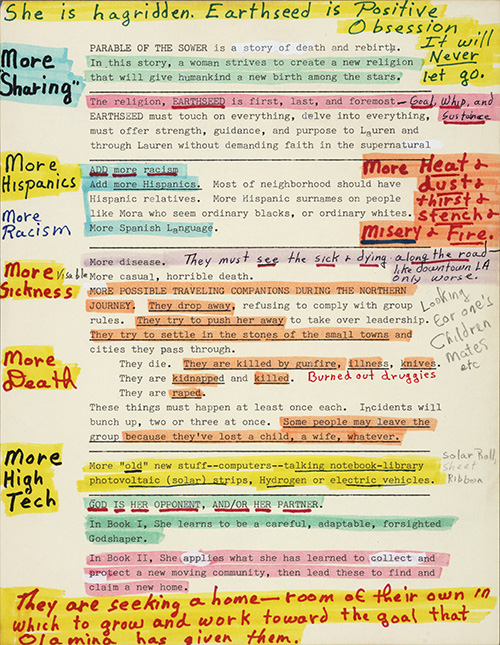 She is hagridden. Earthseed is Positive
Obsession
It will
Never
let go.
More
"Sharing"
PARABLE OF THE SOWER is a story of death and rebirth.
In this story, a woman strives to create a new religion
that will give humankind a new birth among the stars.
The religion, EARTHSEED is first, last, and foremost — Goal, Whip, and
Sustaince
EARTHSEED must touch on everything, delve into everything,
must offer strength, guidance, and purpose to Lauren and
through Lauren without demanding faith in the supernatural
More
Hispanics
More
Racism
ADD more racism
Add more Hispanics. Most of neighborhood should have
Hispanic relatives. More Hispanic surnames on people
like Mora who seem ordinary blacks, or ordinary whites.
More Spanish Language.
More Heat &
dust &
thirst &
stench &
Misery & Fire.
More Visable
Sickness
More disease. They must see the sick & dying along the road—
like downtown LA
only worse.
More casual, horrible death.
MORE POSSIBLE TRAVELING COMPANIONS DURING THE NORTHERN
JOURNEY. They drop away, refusing to comply with group
rules. They try to push her away to take over leadership.
They try to settle in the stones of the small towns and
cities they pass through.
Looking
For one's
Children
Mates
etc
More
Death
They die. They are killed by gunfire, illness, knives.
They are kidnapped and killed. Burned out druggies
They are raped.
These things must happen at least once each. Incidents will
bunch up, two or three at once. Some people may leave the
group because they've lost a child, a wife, whatever.
More
High
Tech
More "old" new stuff--computers--talking notebook-library
photovoltaic (solar) strips, Hydrogen or electric vehicles.
Solar Roll,
sheet
Ribbon
GOD IS HER OPPONENT, AND/OR HER PARTNER.
In Book I, She learns to be a careful, adaptable, forsighted
Godshaper.
In Book II, She applies what she has learned to collect and
protect a new moving community, then lead these to find and
claim a new home.
They are seeking a home — room of their own in
which to grow and work toward the goal that
Olamina has given them.